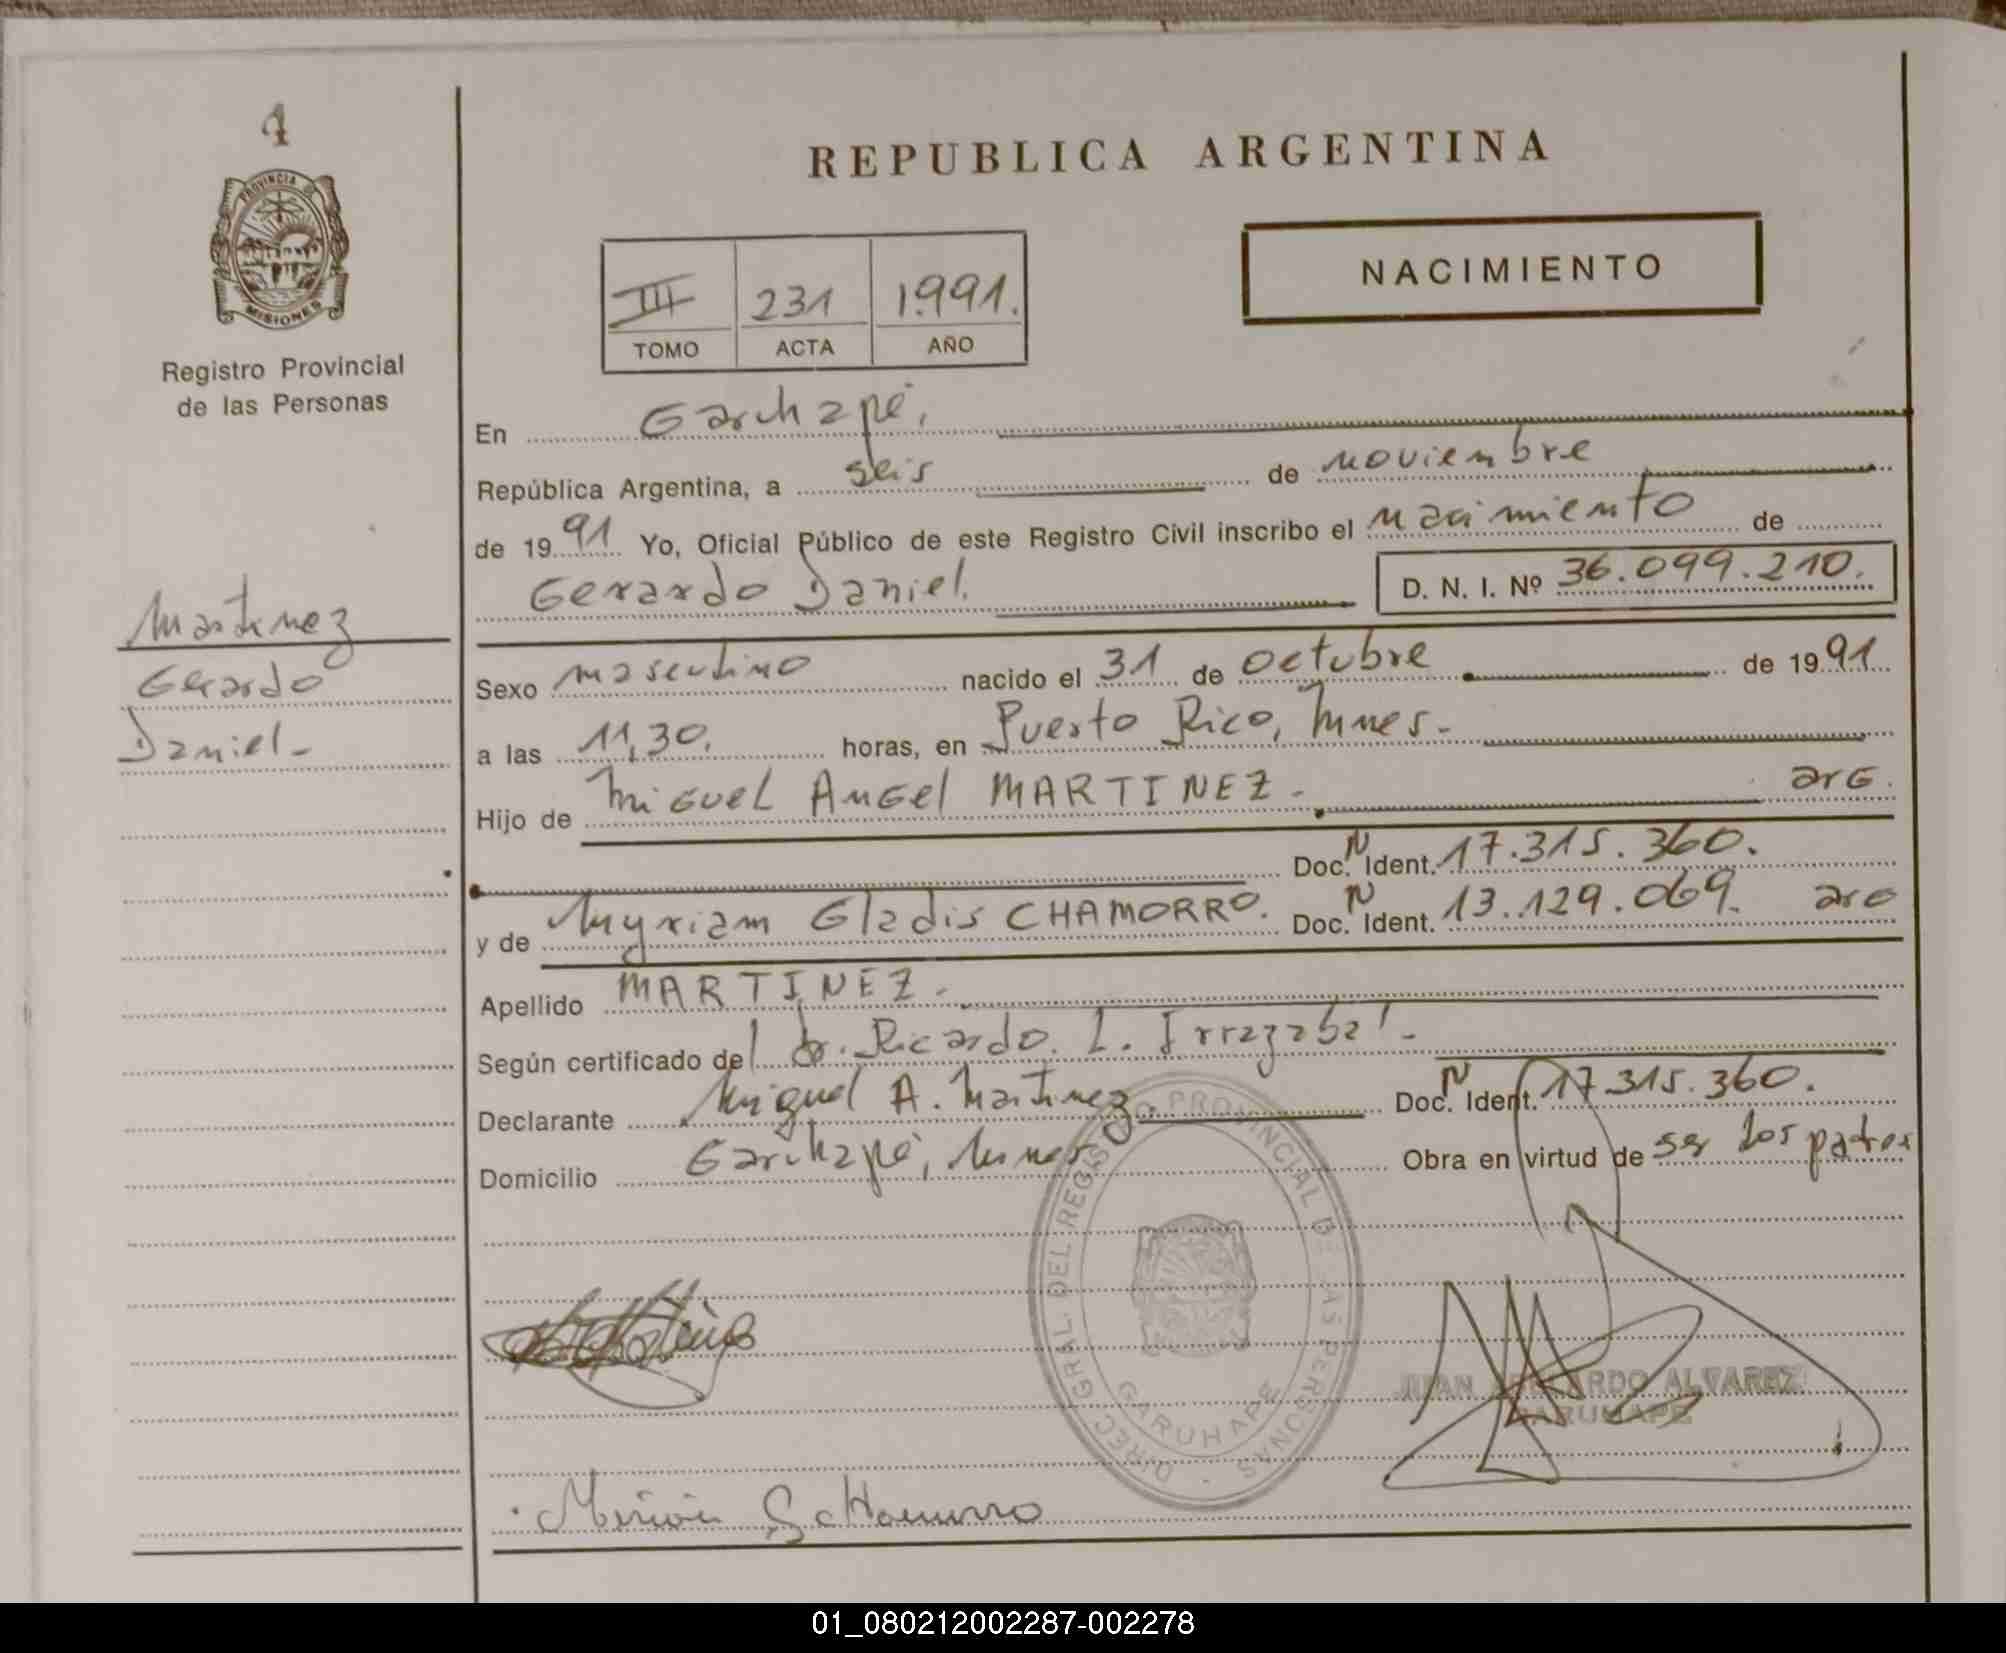 4
PROVINCIA DE
MISIONES
Registro Provincial
de las Personas
REPUBLICA ARGENTINA
NACIMIENTO
III 231 1.991.
TOMO ACTA AÑO
En Garuhapé,
República Argentina, a seis de noviembre
de 1991 Yo, Oficial Público de este Registro Civil inscribo el nacimiento de
Gerardo Daniel. D. N. I. Nº 36.099.210.
Martinez
Gerardo
Daniel-
Sexo masculino nacido el 31 de octubre de 1991
a las 11,30. horas, en Puerto Rico, Mnes-
Hijo de Miguel Angel MARTINEZ - arg.
Doc. N Ident. 17.315.360.
y de Myriam Gladis CHAMORRO. Doc. N Ident. 13.129.069. arg
Apellido MARTINEZ -
Según certificado del dr. Ricardo L. Irrazabal -
Declarante Miguel A. Martinez. Doc. N Ident. 17.315.360.
Domicilio Garuhapé, Mnes Obra en virtud de ser los padres
DIREC. GRAL. DEL REGISTRO PROVINCIAL DE LAS PERSONAS -
GARUHAPE
ALVAREZ
GARUHAPE
01_080212002287-002278